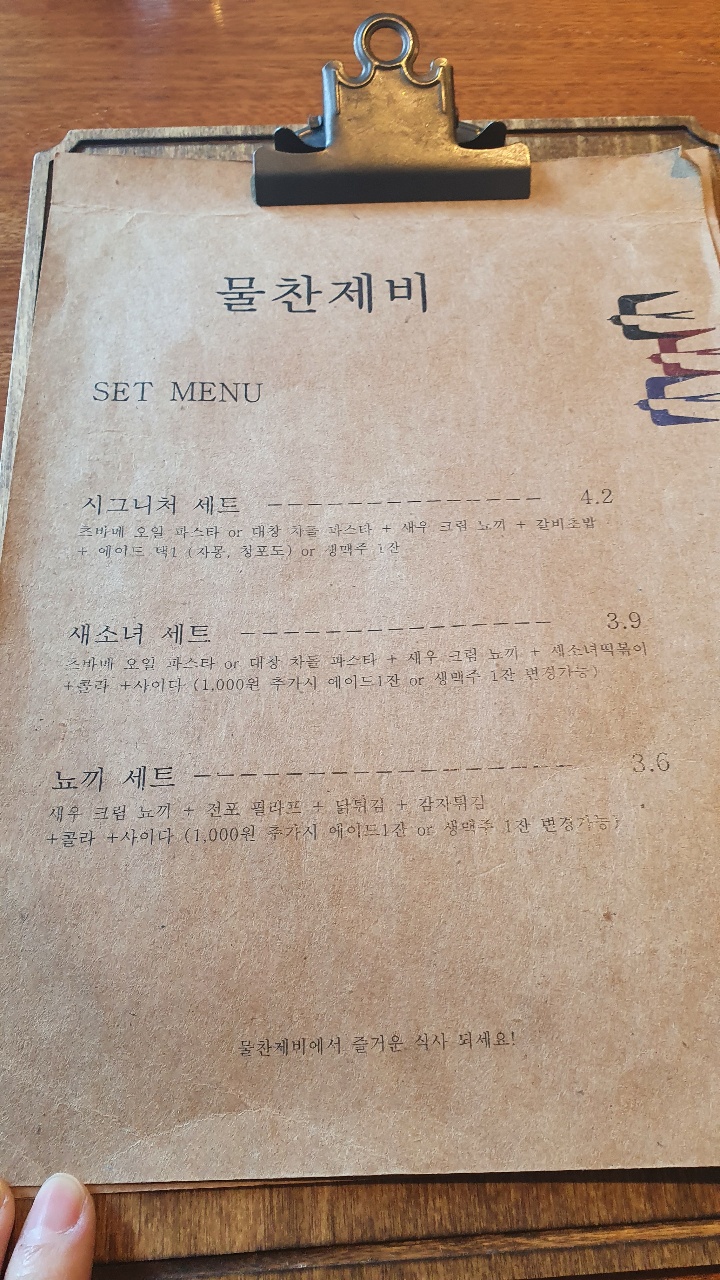 물찬제비
SET MENU
시그니처 세트 -------------- 4.2
츠바메 오일 파스타 or 대창 차돌 파스타 + 새우 크림 뇨끼 + 갈비초밥
+ 에이드 택1 (자몽, 청포도) or 생맥주 1잔
새소녀 세트 --------------- 3.9
츠바메 오일 파스타 or 대창 차돌 파스타 + 새우 크림 뇨끼 + 새소녀떡볶이
+콜라 +사이다 (1,000원 추가시 에이드1잔 or 생맥주 1잔 변경가능)
뇨끼 세트 ------------------ 3.6
새우 크림 뇨끼 + 전포 필라프 + 닭튀김 + 감자튀김
+콜라 +사이다 (1,000원 추가시 에이드1잔 or 생맥주 1잔 변경가능)
물찬제비에서 즐거운 식사 되세요!